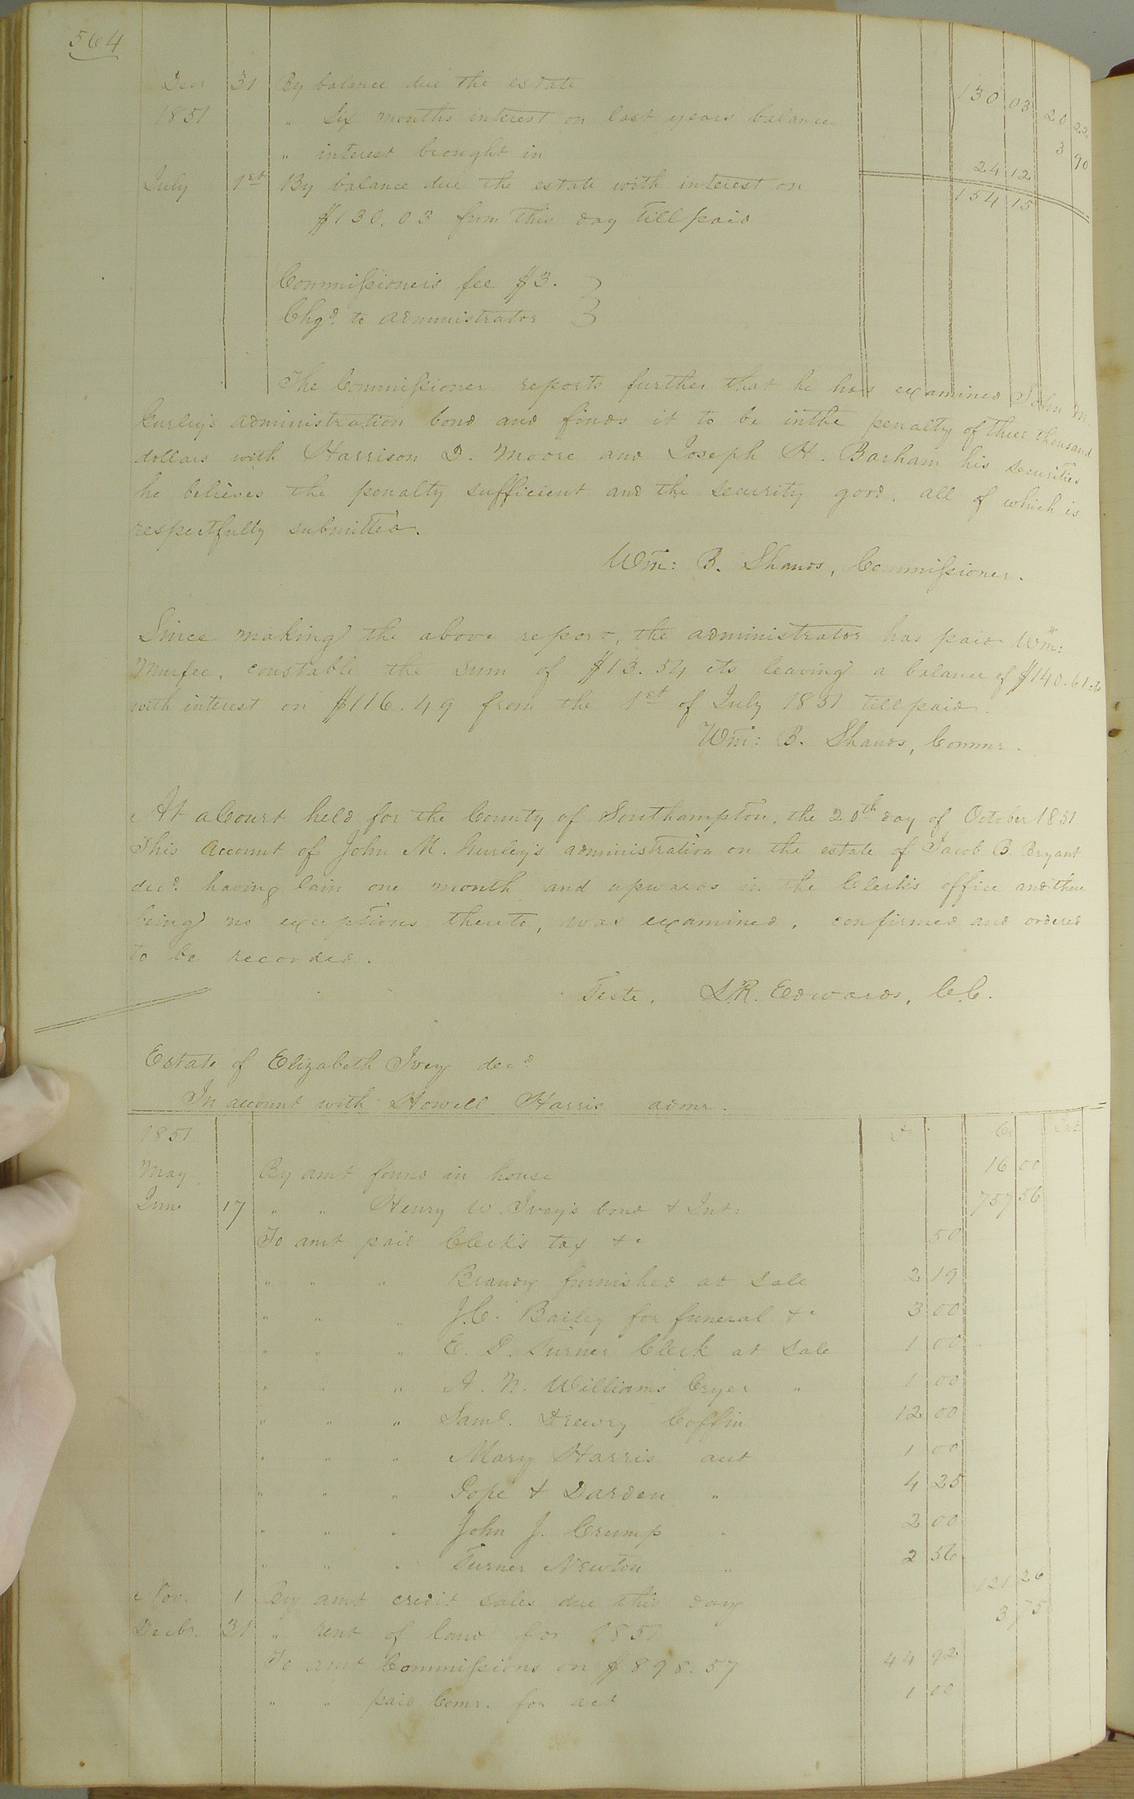 564
Decr 31 By balance due the estate 130 03 20 22
1851 " Six months interest on last years balance 3 90
" interest brought in 24 12
July 1st By balance due the estate with interest on 154 15
$130.03 from this day till paid
Commissioner's fee $3. }
Chgd. to administrator }
The Commissioner reports further that he has examined John M.
Gurley's administration bond and finds it to be in the penalty of three thousand
dollars with Harrison D. Moore and Joseph H. Barham his securities
he believes the penalty sufficient and the security good. all of which is
respectfully submitted.
Wm: B. Shands, Commissioner.
Since making the above report, the administrator has paid Wm:
Murfee, constable the sum of $13.54 cts leaving a balance of $140.61 cts
with interest on $116.49 from the 1st of July 1851 till paid.
Wm: B. Shands, Commr.
At a Court held for the County of Southampton, the 20th day of October 1851
This Account of John M. Gurley's administration on the estate of Jacob B. Bryant
decd. having lain one month and upwards in the Clerk's office and there
being no exceptions thereto, was examined, confirmed and ordered
to be recorded.
Teste, L.R. Edwards, C.C.
Estate of Elizabeth Ivey decd
In account with Howell Harris admr.
1851 Dr Cr
May By amt found in house 16 00
June 17 " " Henry W. Ivey's bond & Int: 757 56
To amt paid Clerk's tax &c 50
" " " Brandy furnished at sale 2 19
" " " J.C. Bailey for funeral &c 3 00
" " " E. D. Turner Clerk at sale 1 00
" " " A. N. Williams Cryer " 1 00
" " " Saml. Drewry Coffin 12 00
" " " Mary Harris act 1 00
" " " Pope & Darden " 4 25
" " " John J. Crump " 2 00
" " " Turner Newton " 2 56
Nov. 1 By amt credit sales due this day 121 26
Decbr. 31 " rent of land for 1851 3 75
To amt Commissions on $898.57 44 92
" " paid Comr. for act 1 00